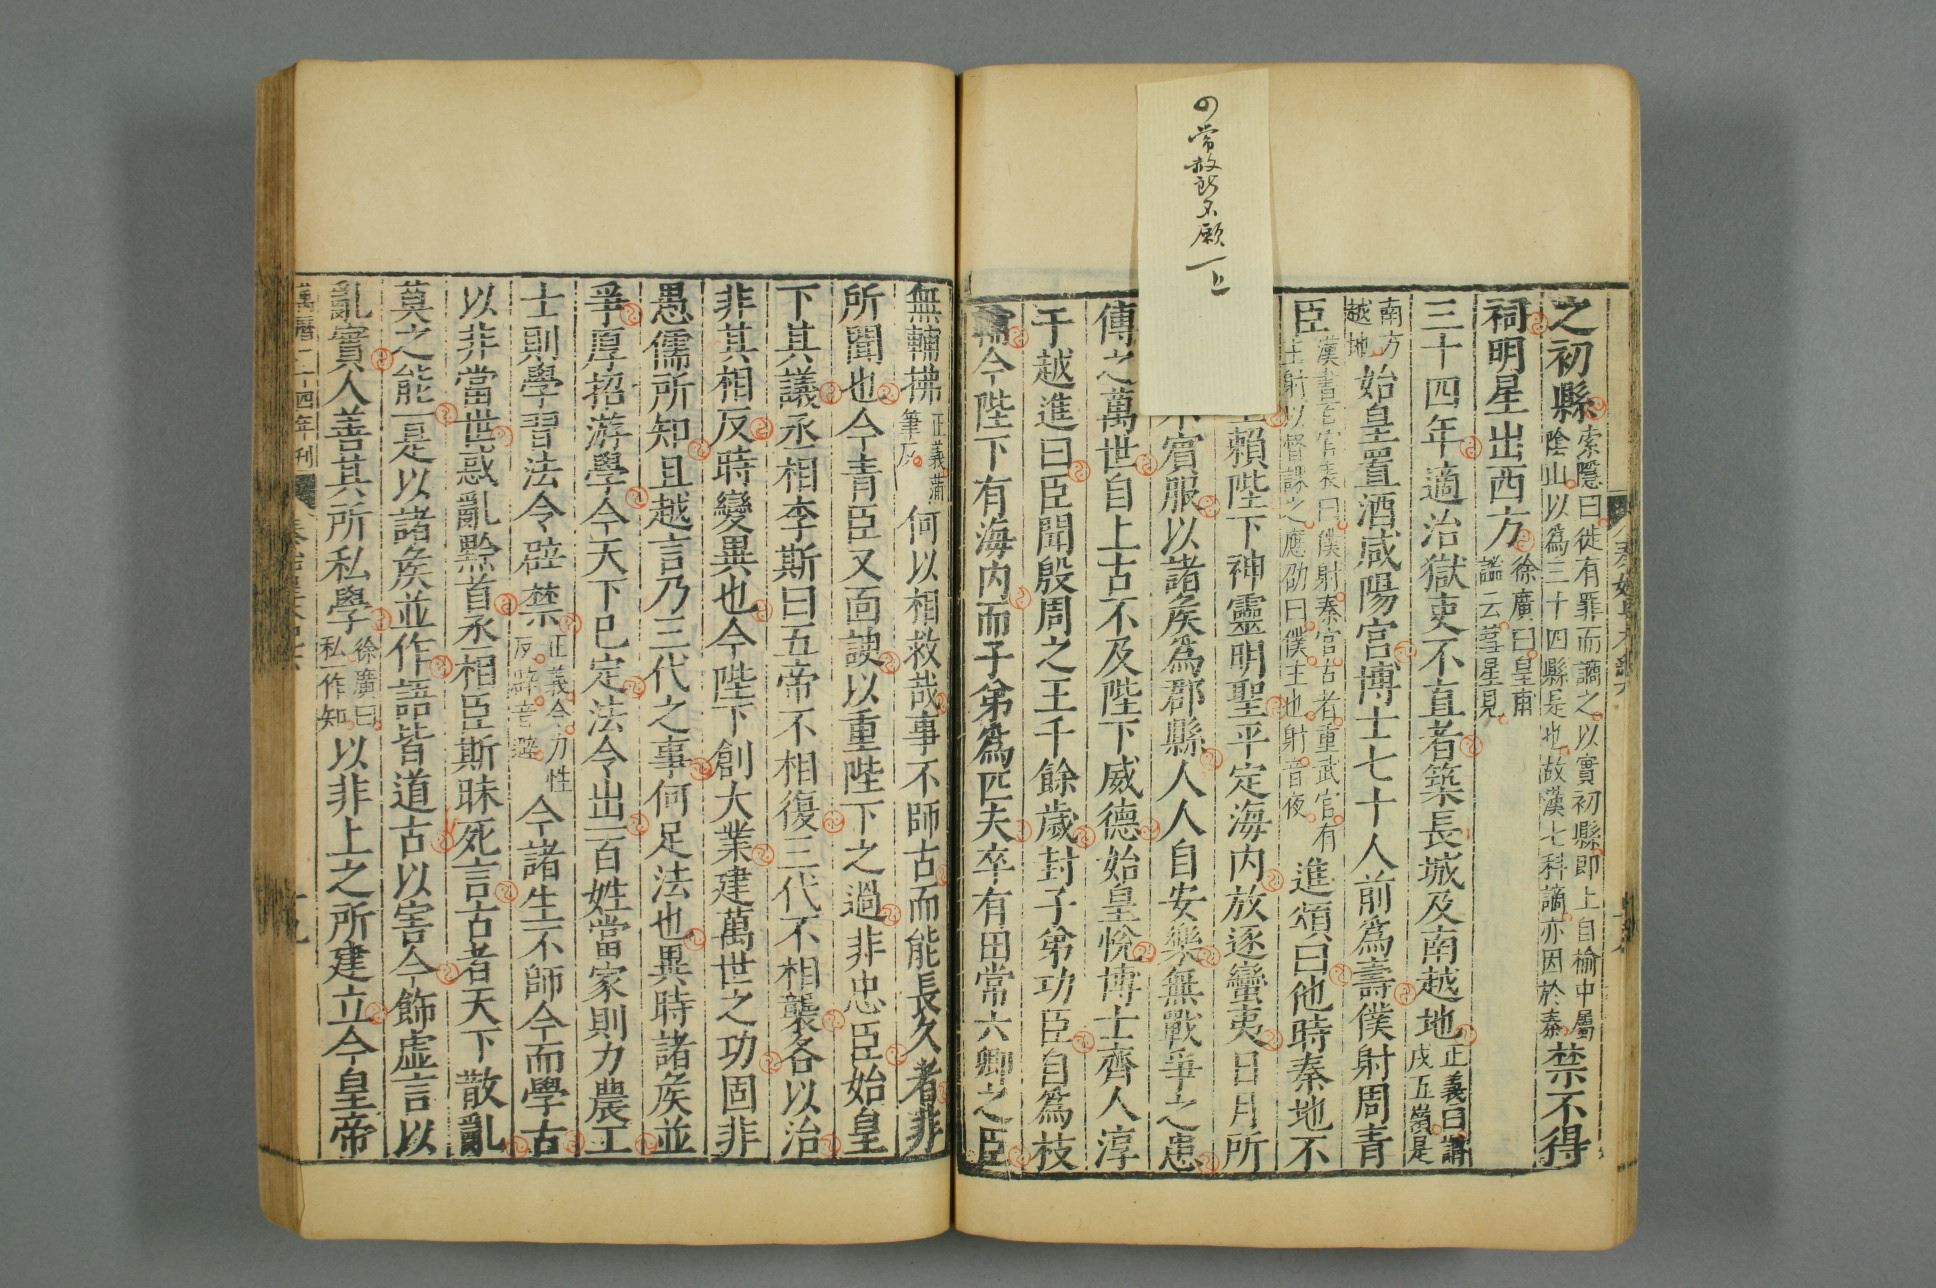 之初縣索隱曰徙有罪而謫之以實初縣即上自榆中屬陰山以為三十四縣是也故漢七科謫亦因於秦禁不得
祠明星出西方徐廣曰皇甫謐云彗星見
三十四年適治獄吏不直者築長城及南越地正義曰謂戍五嶺是
南方越地始皇置酒咸陽宮博士七十人前為壽僕射周青
臣漢書百官表曰僕射秦官古者重武官有主射以督課之應劭曰僕主也射音夜進頌曰他時秦地不
賴陛下神靈明聖平定海內放逐蠻夷日月所
不賓服以諸侯為郡縣人人自安樂無戰爭之患
傳之萬世自上古不及陛下威德始皇悅博士齊人淳
于越進曰臣聞殷周之王千餘歲封子弟功臣自為枝
輔今陛下有海內而子弟為匹夫卒有田常六卿之臣
無輔拂正義蒲筆反何以相救哉事不師古而能長久者非
所聞也今青臣又面諛以重陛下之過非忠臣始皇
下其議丞相李斯曰五帝不相復三代不相襲各以治
非其相反時變異也今陛下創大業建萬世之功固非
愚儒所知且越言乃三代之事何足法也異時諸侯並
爭厚招游學今天下已定法令出一百姓當家則力農工
士則學習法令辟禁正義令力性反辟音避今諸生不師今而學古
以非當世惑亂黔首丞相臣斯昧死言古者天下散亂
莫之能一是以諸侯並作語皆道古以害今飾虛言以
亂實人善其所私學徐廣曰私一作知以非上之所建立今皇帝
萬曆二十四年刊 秦始皇本紀六 十九